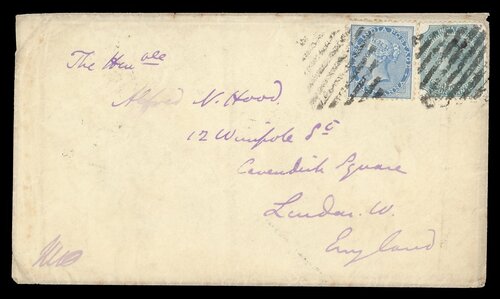 The Hon ble
Alfred N. Hood.
12 Wimpole St
Cavendish Square
London. W.
England